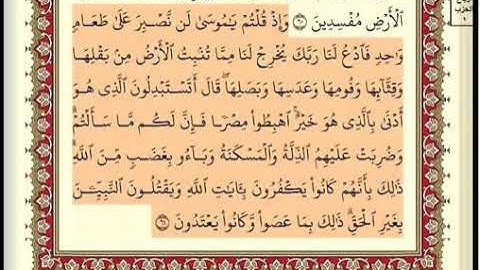 ٱلْأَرْضِ مُفْسِدِينَ ٦٠ وَإِذْ قُلْتُمْ يَٰمُوسَىٰ لَن نَّصْبِرَ عَلَىٰ طَعَامٍ
وَٰحِدٍ فَٱدْعُ لَنَا رَبَّكَ يُخْرِجْ لَنَا مِمَّا تُنۢبِتُ ٱلْأَرْضُ مِنۢ بَقْلِهَا
وَقِثَّآئِهَا وَفُومِهَا وَعَدَسِهَا وَبَصَلِهَا ۖ قَالَ أَتَسْتَبْدِلُونَ ٱلَّذِى هُوَ
أَدْنَىٰ بِٱلَّذِى هُوَ خَيْرٌ ۚ ٱهْبِطُوا۟ مِصْرًا فَإِنَّ لَكُم مَّا سَأَلْتُمْ ۗ
وَضُرِبَتْ عَلَيْهِمُ ٱلذِّلَّةُ وَٱلْمَسْكَنَةُ وَبَآءُو بِغَضَبٍ مِّنَ ٱللَّهِ ۗ
ذَٰلِكَ بِأَنَّهُمْ كَانُوا۟ يَكْفُرُونَ بِـَٔايَٰتِ ٱللَّهِ وَيَقْتُلُونَ ٱلنَّبِيِّـۧنَ
بِغَيْرِ ٱلْحَقِّ ۗ ذَٰلِكَ بِمَا عَصَوا۟ وَّكَانُوا۟ يَعْتَدُونَ ٦١